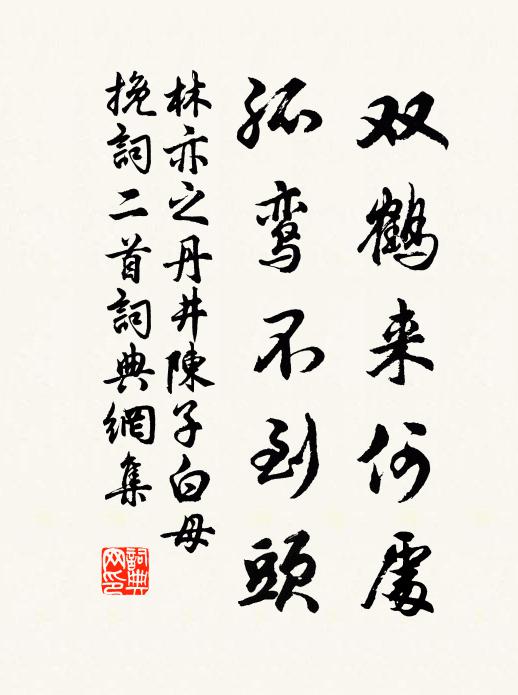 双鹤来何處
孤鸾不到頭
林亦之丹井陳子白母
挽詞二首詞典網集
詞典网印